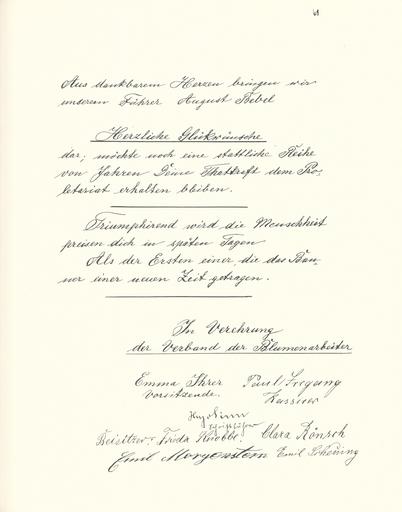 61
Aus dankbarem Herzen bringen wir
unserem Führer August Bebel
Herzliche Glükwünsche
dar; möchte noch eine stattliche Reihe
von Jahren Deine Thatkraft dem Pro-
letariat erhalten bleiben.
Triumphirend wird die Menschheit
preisen dich in späten Tagen
Als der Ersten einer, die das Ban-
ner einer neuen Zeit getragen.
In Verehrung
der Verband der Blumenarbeiter
Emma Ihrer Paul Liegang
Vorsitzende. Kassirer
Schriftführer
Beisitzer: Frida Knobbe. Clara Rönsch
Emil Morgenstern Emil Scheining